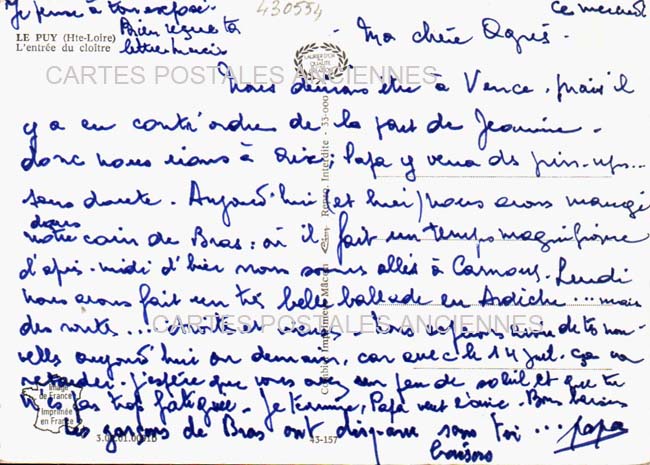 Je pense à ton exposé.
430554
ce mercredi
Bien reçu ta
lettre merci
LE PUY (Hte-Loire)
L'entrée du cloître
Ma chère Agnès.
CARTES POSTALES ANCIENNES
Nous devions être à Vence, mais il
y a eu contrordre de la part de Jeannine.
donc nous irons à Aix; Papa y verra ds pin-ups...
sans doute. Aujourd'hui (et hier) nous avons mangé
dans
notre coin de Bras: où il fait un temps magnifique
d'après-midi d'hier nous sommes allés à Carnoux. Lundi
nous avons fait un très belle ballade en Ardèche... mais
des routes... étroites et
CARTES POSTALES ANCIENNES
velles aujourd'hui ou demain, car avec le 14 juil. ça va
retarder. J'espère que vous avez un peu de soleil et que tu
n'es pas trop fatiguée. Je termine, Papa veut écrire. Bons baisers
Les garçons de Bras ont disparu sans toi... papa
baisers
Image
de France
Imprimée
en France
3.02.01.0091B
43-157
Combier Imprimeur Mâcon
Repro. Interdite - 33-000
LABEL D'OR
QUALITÉ